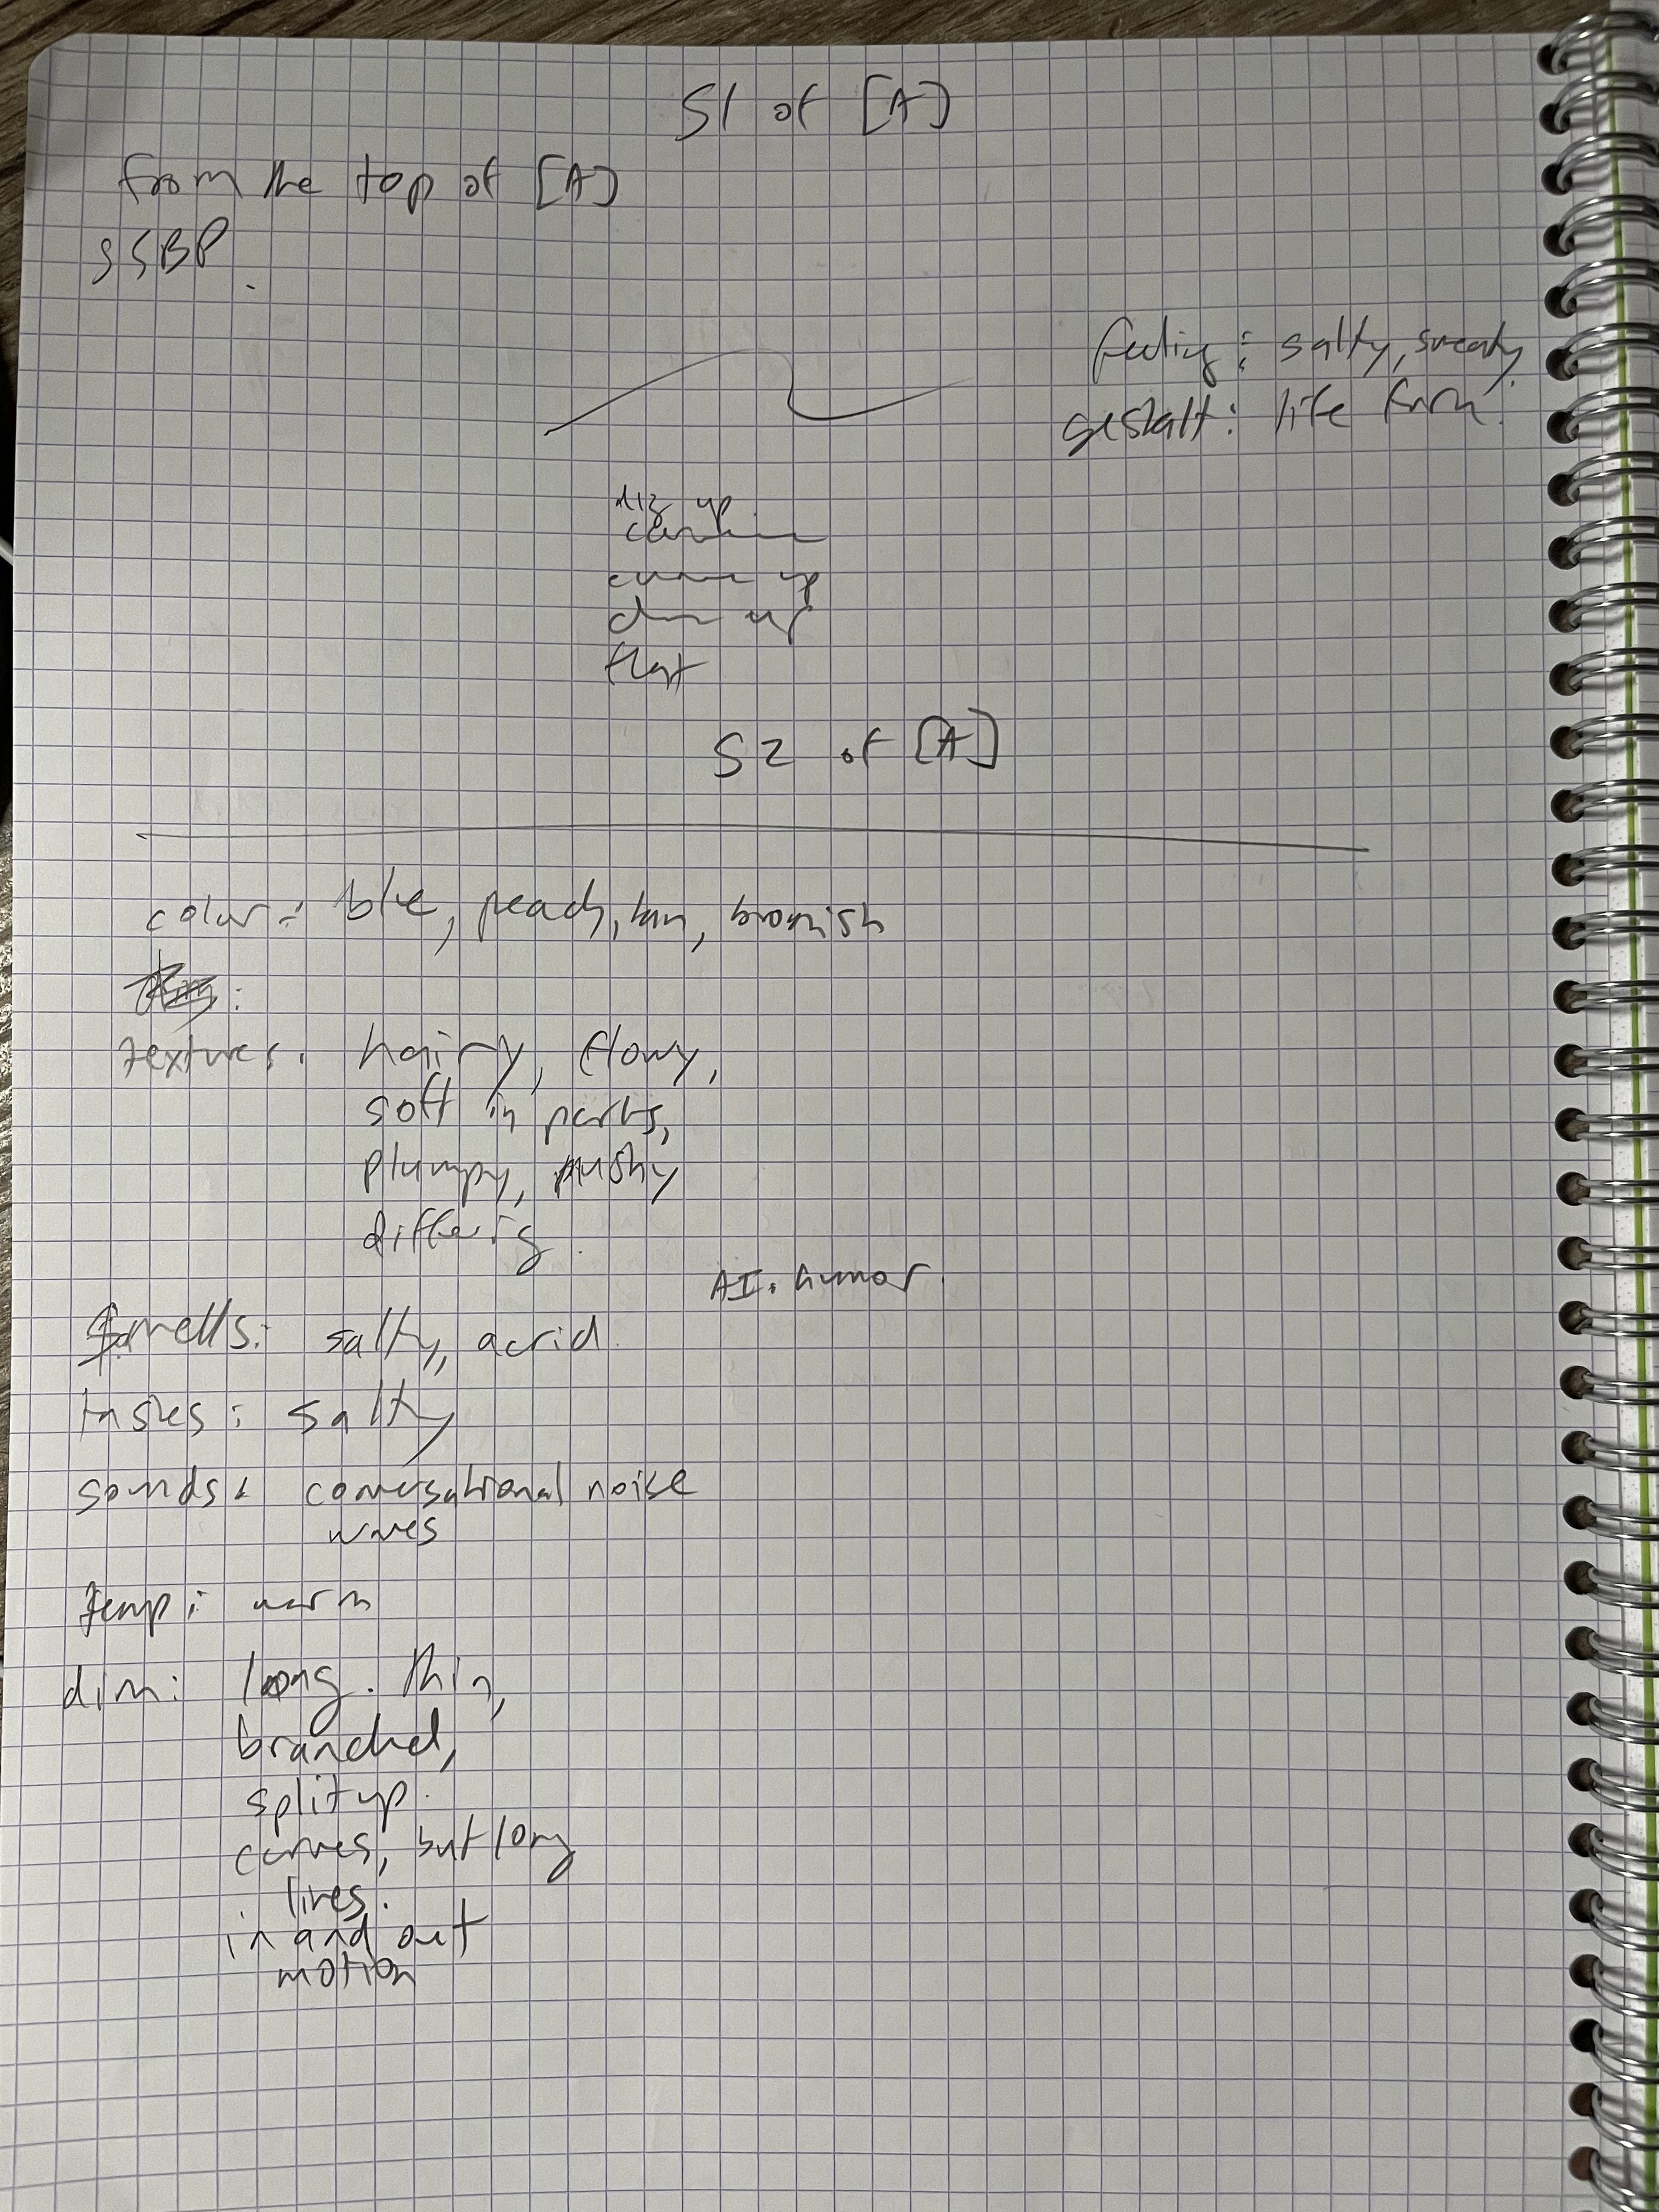 S1 of [A]
from the top of [A]
SSBP.
feeling: salty, sweaty.
gestalt: life form.
up
curve up
up
flat
S2 of [A]
color: blue, peach, tan, brownish
textures: hairy, flowy,
soft in parts,
plumpy, mushy
differing.
AI: humor.
smells: salty, acrid.
tastes: salty
sounds: conversational noise
waves
temp: warm
dim: long. thin,
branched,
split up.
curves, but long
lines.
in and out
motion